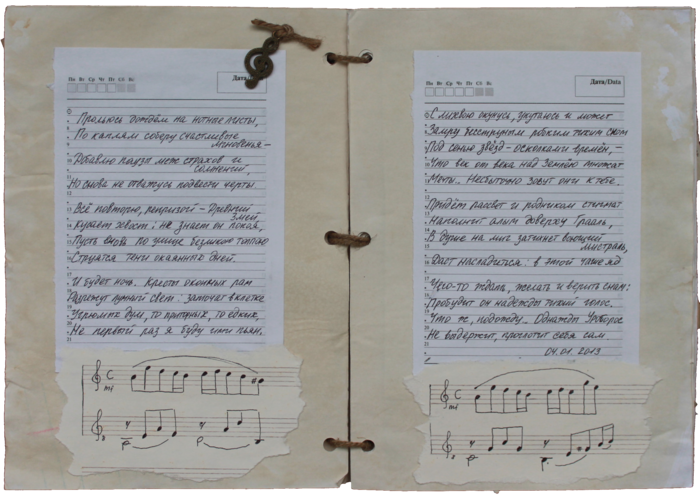 Пн Вт Ср Чт Пт Сб Вс
Дата/
Прольюсь дождём на нотные листы,
По каплям соберу счастливые
мгновенья –
Добавлю пауз меж страхов и
сомнений,
Но снова не отважусь подвести черты.
Всё повторно, репризой – Древний
Змей
Кусает хвост: не знает он покоя,
Пусть вновь по улице безликою толпою
Струятся тени окаянных дней.
И будет ночь. Кресты оконных рам
лунный свет: в клетке
Угрюмых дум, то приторных, то едких,
Не первый раз я буду ими пьян.
C
mf
p
p
Пн Вт Ср Чт Пт Сб Вс
Дата/Data
С лихвою окунусь, укутаюсь и может
Замру бесструнным робким тихим сном
Под сенью звёзд – осколками времён, –
Что век от века над землёю множат
Мечты.. Несбыточно зовут они к тебе.
Придёт рассвет и родником
Наполнит алым доверху Грааль,
В душе на миг затихнет воющий
мистраль,
Даст насладиться: в этой чаше яд
Чего-то ждать, желать и верить снам:
Пробудит он надежды тихий голос.
Что ж, подожду.. Однажды Уроборос
Не выдержит, проглотит себя сам
04.01.2013
C
mf
p
p